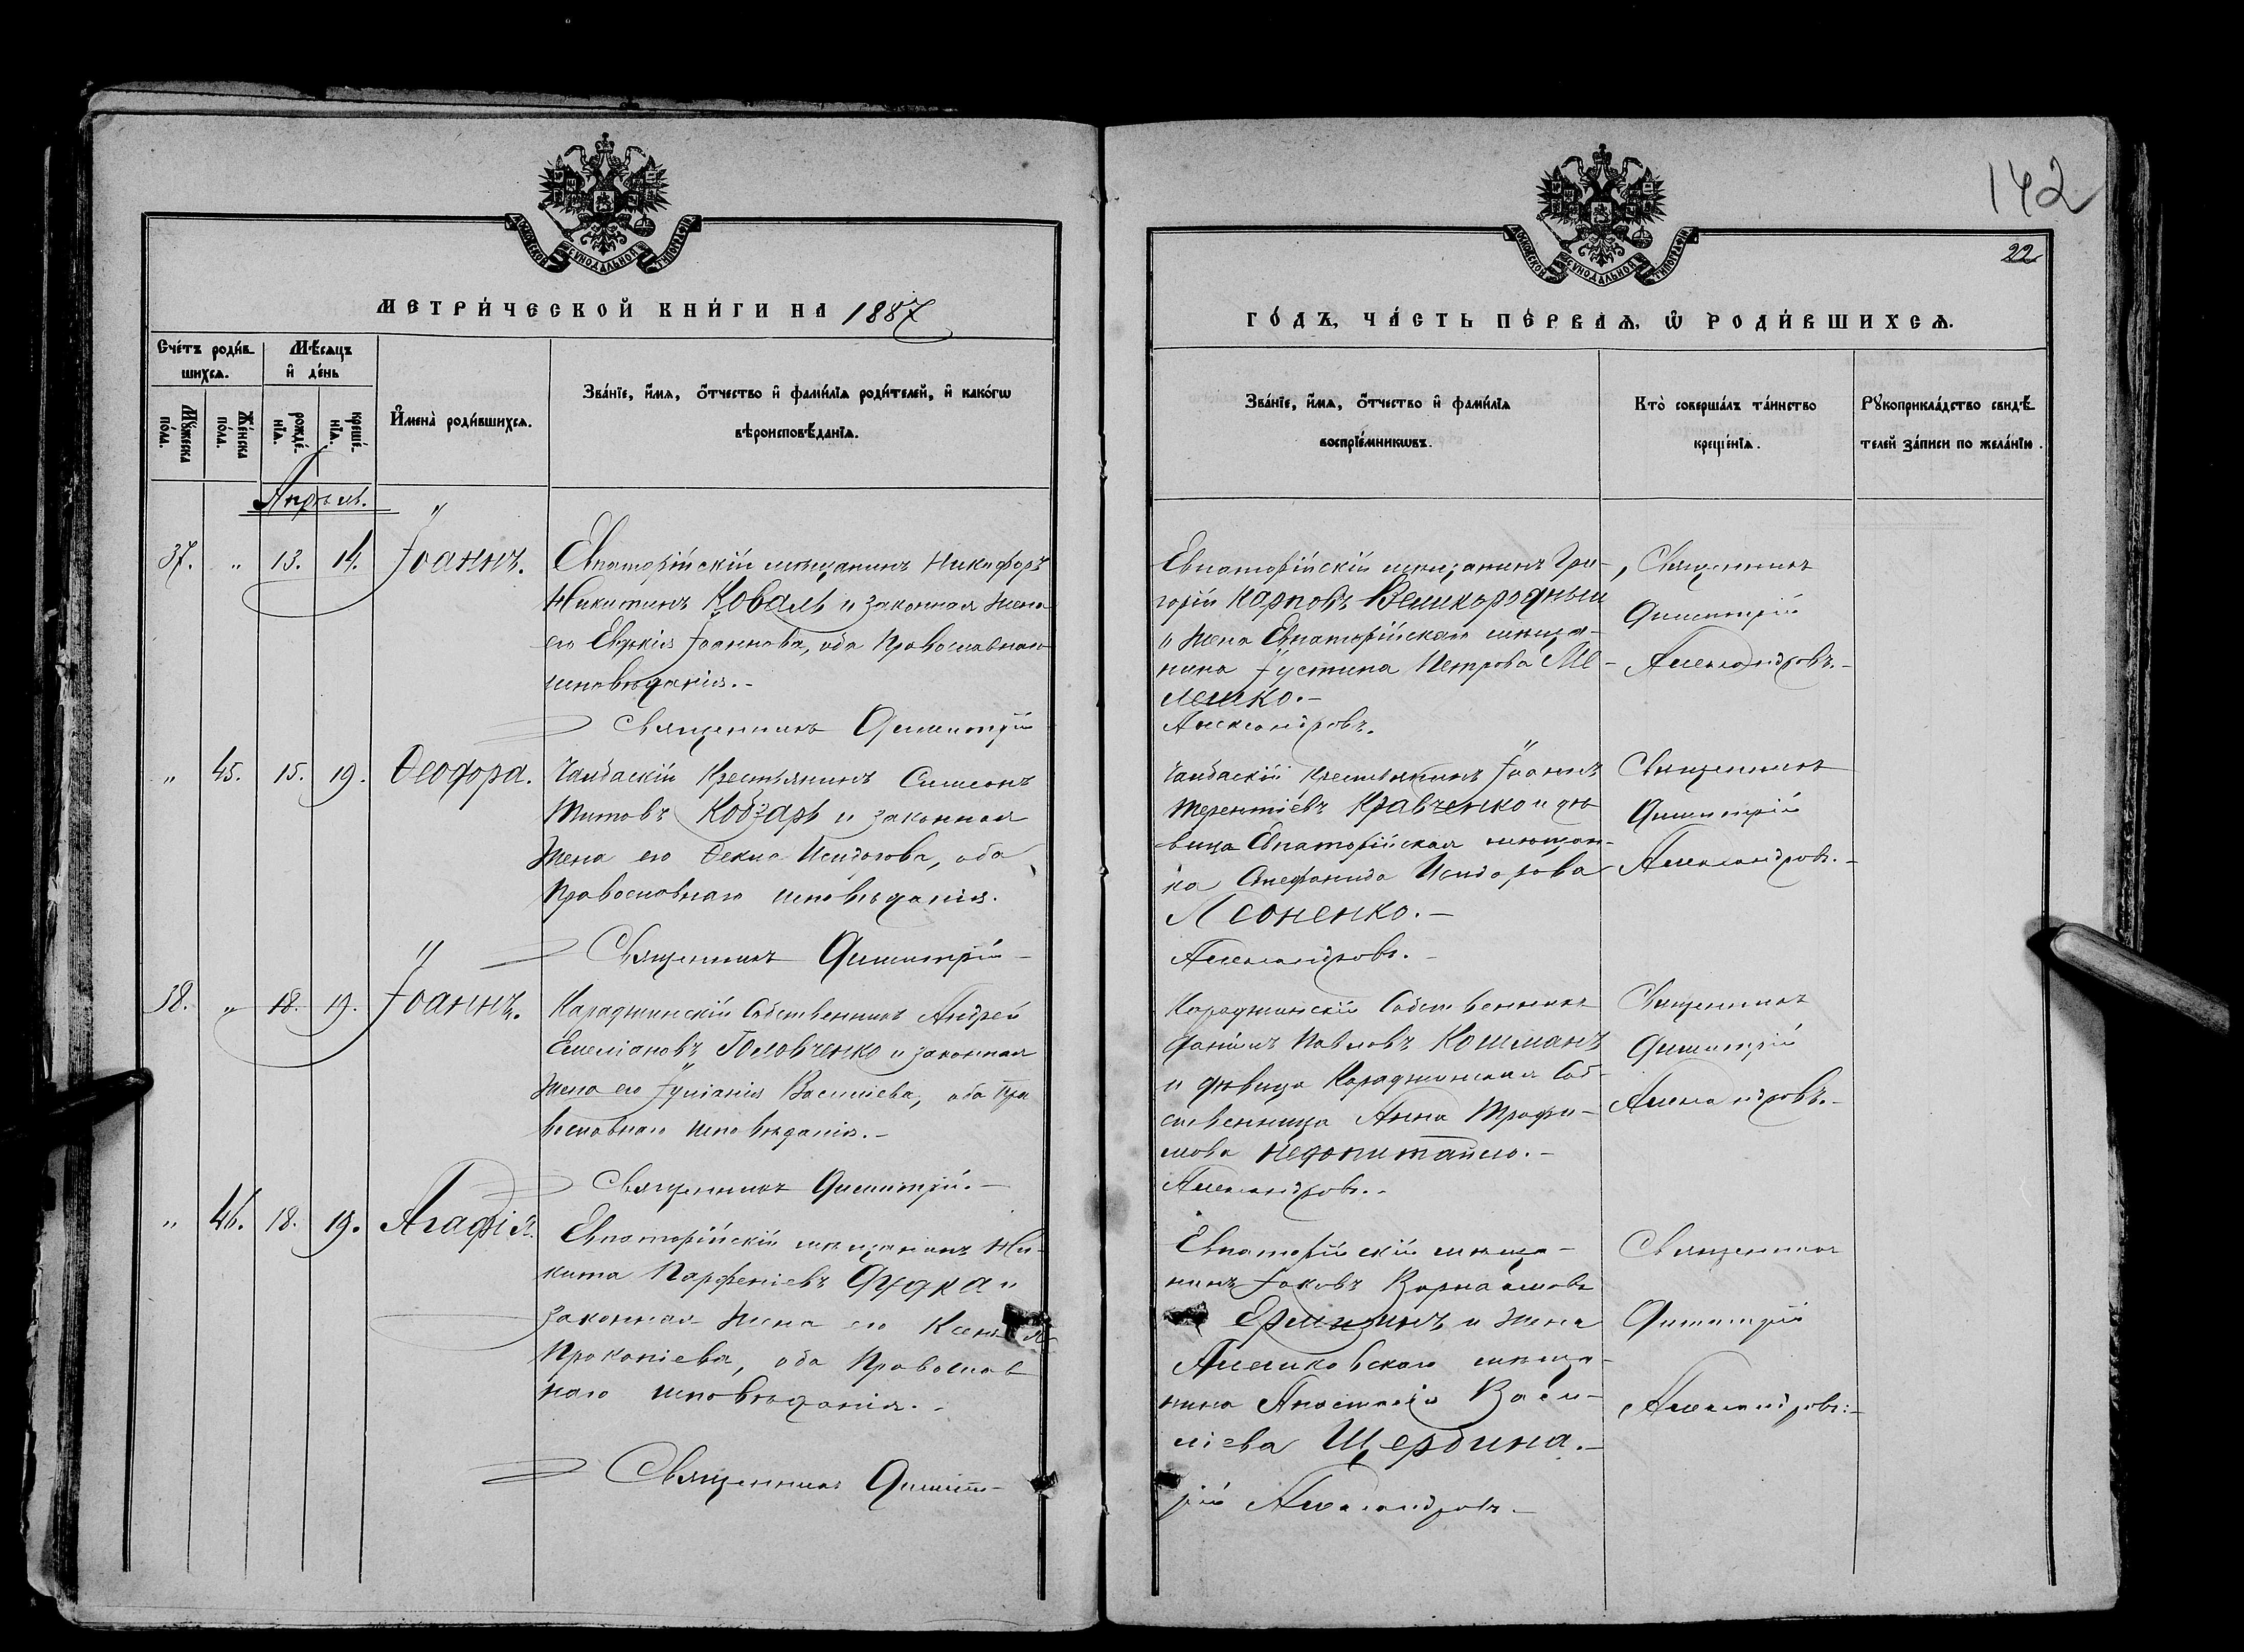 142
22
МОСКОВСКОЙ СѴНОДАЛЬНОЙ ТИПОГРАФІИ
МЕТРИ́ЧЕСКОЙ КНИ́ГИ НА 1887
Сче́тъ роди́в-
шихсѧ.
Мѣ́сѧцъ
и҆ де́нь
Мꙋ́жеска
по́ла.
Же́нска
по́ла.
рожде́-
нїѧ.
креще́-
нїѧ.
И҆мена̀ роди́вшихсѧ.
Зва́нїе, и҆́мѧ, ѻ҆́тчество и҆ фами́лїѧ роди́телей, и҆ како́гѡ
вѣроисповѣ́данїѧ.
Апрѣль.
37. „ 13. 14. Іоаннъ.
Евпаторійскій мѣщанинъ Никифоръ
Никитинъ Коваль и законная жена
его Евдокія Іоаннова, оба Православнаго
исповѣданія.-
Священникъ Димитрій
„ 45. 15. 19. Ѳеодора.
Чамбаскій Крестьянинъ Симеонъ
Титовъ Кобзарь и законная
жена его Ѳекла Исидорова, оба
Православнаго исповѣданія.
Священникъ Димитрій-
38. „ 18. 19. Іоаннъ.
Караджинскій Собственникъ Андрей
Емеліановъ Головченко и законная
жена его Іуліанія Василіева, оба Пра
вославнаго исповѣданія.-
Священникъ Димитрій.-
„ 46. 18. 19. Агафія.
Евпаторійскій мѣщанинъ Ни-
кита Парфеніевъ Дудка и
законная жена его
Прокопіева, оба Православ
наго исповѣданія.-
Священникъ Димит-
МОСКОВСКОЙ СѴНОДАЛЬНОЙ ТИПОГРАФІИ
ГО́ДЪ, ЧА́СТЬ ПЕ́РВАѦ, Ѡ҆ РОДИ́ВШИХСѦ.
Зва́нїе, и҆́мѧ, ѻ҆́тчество и҆ фами́лїѧ
воспрїе́мникѡвъ.
Кто̀ соверша́лъ та́инство
креще́нїѧ.
Рꙋкоприкла́дство свидѣ́-
телей за́писи по жела́нїю.
Евпаторійскій мѣщанинъ Гри-
горій Карповъ Великородный
и жена Евпаторійскаго мѣща-
нина Іустина Петрова Ме-
лешко.-
Александровъ.
Священникъ
Димитрій
Александровъ.-
Чамбаскій крестьянинъ Іоаннъ
Терентіевъ Кравченко и дѣ
вица Евпаторійская мѣщан-
ка Стефанида Исидорова
Леоненко.-
Александровъ.-
Священникъ
Димитрій
Александровъ.-
Караджинскій Собственникъ
Даніилъ Павловъ Кошманъ
и дѣвица Караджинская Соб-
ственница Анна Трофи-
мова Недопитайло.-
Александровъ.-
Священникъ
Димитрій
Александровъ.-
Евпаторійскій мѣща-
нинъ Іаковъ
и жена
Алешковскаго мѣща-
нина Анастасія Васи-
ліева Щербина.-
рій Александровъ.-
Священникъ
Димитрій
Александровъ.-